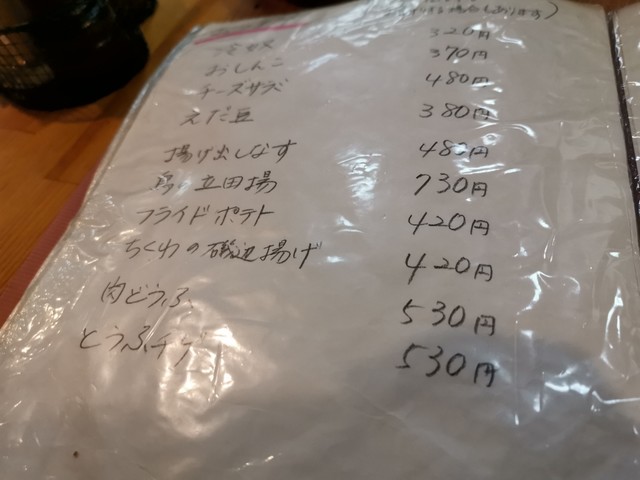 場合もあります)
冷奴 320円
おしんこ 370円
チーズサラダ 480円
えだ豆 380円
揚げ出しなす 480円
鳥の立田揚 730円
フライドポテト 420円
ちくわの磯辺揚げ 420円
肉どうふ 530円
とうふチゲ 530円